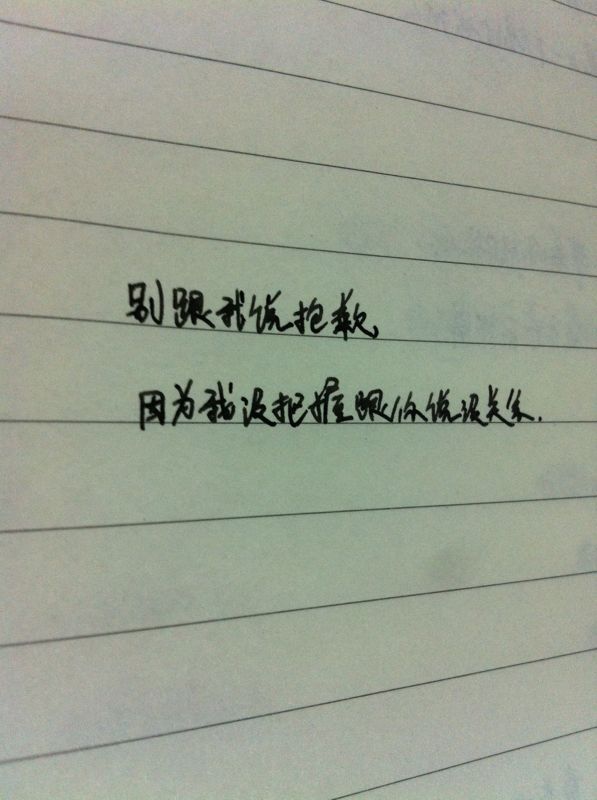 别跟我说抱歉,
因为我没把握跟你说没关系.